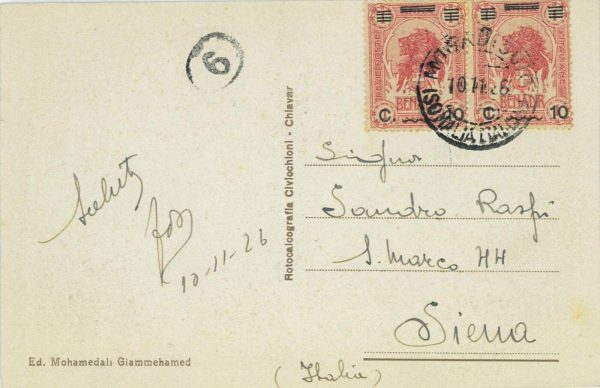 6
BENADIR BENADIR
C. 10 C. 10
MOGADISCIO
10.11.26
(SOMALIA ITALIANA)
Rotocalcografia Civicchioni - Chiavari
Saluti
10-11-26
Signor
Sandro Raspi
S. Marco 44
Siena
(Italia)
Ed. Mohamedali Giammehamed